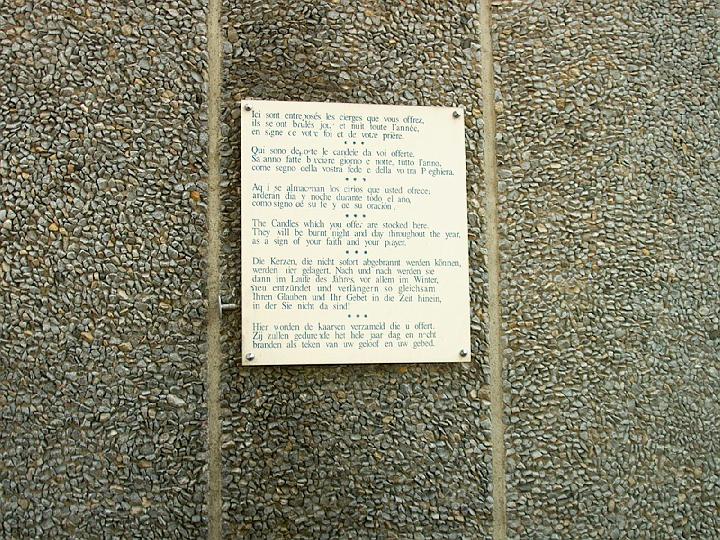 Ici sont entreposés les cierges que vous offrez,
ils seront brulés jour et nuit toute l'année,
en signe de votre foi et de votre prière.
* * *
Qui sono deposte le candele da voi offerte.
Sa anno fatte bruciare giorno e notte, tutto l'anno,
come segno della vostra fede e della vostra Preghiera.
* * *
Aqui se almacenan los cirios que usted ofrece;
arderan dia y noche durante todo el ano,
como signo de su fe y de su oracion,
* * *
The Candles which you offer are stocked here.
They will be burnt night and day throughout the year,
as a sign of your faith and your prayer.
* * *
Die Kerzen, die nicht sofort abgebrannt werden können,
werden hier gelagert. Nach und nach werden sie
dann im Laufe des Jahres, vor allem im Winter,
neu entzündet und verlängern so gleichsam
Ihren Glauben und Ihr Gebet in die Zeit hinein,
in der Sie nicht da sind!
* * *
Hier worden de kaarsen verzameld die u offert.
Zij zullen gedurende het hele jaar dag en nacht
branden als teken van uw geloof en uw gebed.